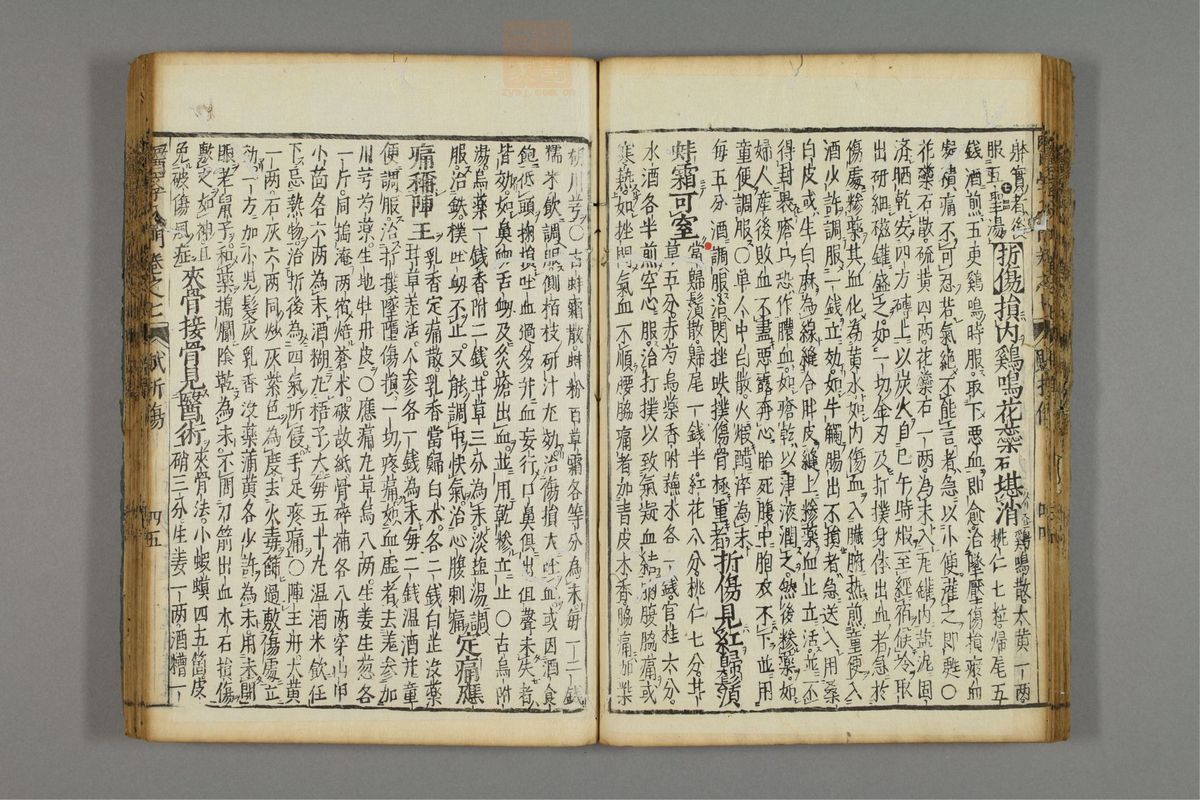 服五聖湯折傷損內鷄鳴花蘂石堪消鷄鳴散大黃一兩
錢酒煎五更鷄鳴時服取下惡血即愈治墜壓傷損瘀血
痛不可忍若氣絕不能言者急以小便灌之即甦〇
花藥石散硫黃四兩花藥石一兩為末入瓦鑵內鹽泥固
濟晒乾安四方磚上以炭火自巳午時煅至經宿候冷取
出研細磁鑵盛之如一切金刃及折撲身体出血者急於
傷處糝藥其血化為黃水如內傷血入臟腑热煎童便入
酒少許調服一錢立効如牛觸腸出不損者急送入用桑
白皮或生白麻為線縫合肚皮縫上糝藥血止立活並不
得封裹瘡口恐作膿血如瘡乾以津液潤之然後糝藥如
婦人産後敗血不盡惡露奔心胎死腹中胞衣不下並用
童便調服〇單人中白散火煅醋淬為末
每五分酒調服治閃挫跌撲傷骨極重者折傷見紅歸鬚
蚌霜可窒當歸鬚散歸尾一錢半紅花八分桃仁七分甘
草五分赤芍烏藥香附蘇木各一錢官桂六分
水酒各半煎空心服治打撲以致氣凝血結胸腹脇痛或
寒熱如挫閃氣血不順腰脇痛者加青皮木香脇痛加柴
胡川芎〇古蚌霜散蚌粉百草霜各等分為末每一二錢
糯米飲調服側栢枝研汁尤効治傷損大吐血或因酒食
飽低頭掬損吐血過多并血妄行口鼻俱出但聲未失者
皆効如鼻衂舌衂及灸瘡出血並用乾糝立止〇古烏附
湯烏藥一錢香附二錢甘草三分為末淡塩湯調
服治跌撲吐衂不止又能調中快氣治心腹刺痛定痛應
痛稱陣王乳香定痛散乳香當歸白朮各二錢白芷沒藥
甘草羌活人參各一錢為末每二錢溫酒并童
便調服治打撲墜墮傷損一切疼痛如血虛者去羌參加
川芎芍藥生地牡丹皮〇應痛丸草烏八兩生姜生葱各
一斤同搗淹兩宿焙蒼朮破故紙骨碎補各八兩穿山甲
小茴各六兩為末酒糊丸梧子大每五十丸温酒米飲任
下忌热物治折後為四氣折侵手足疼痛〇陣王丹大黃
一兩石灰六兩同炒灰紫色為度去火毒篩過敷傷處立
効一方加小児髮灰乳香沒藥蒲黃各少許為末用未開
眼老鼠子和藥搗爛陰乾為末不問刀箭出血木石損傷
敷之如神且
免破傷風症夾骨接骨見醫術夾骨法小蝦蟆四五箇皮
硝三分生姜一兩酒糟一
四五